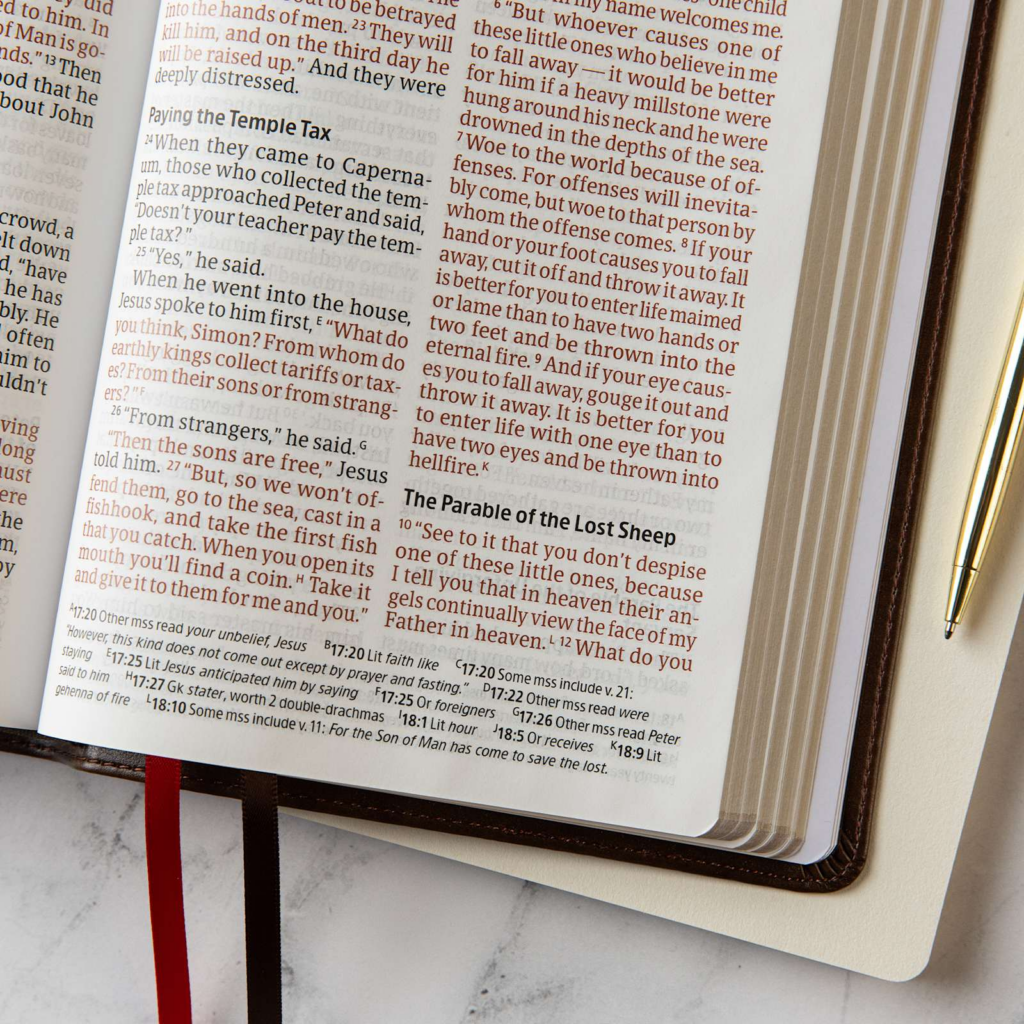 they did
ed to him. In
of Man is go-
nds." 13 Then
ood that he
bout John
crowd, a
elt down
d, "have
he has
bly. He
often
him to
uldn't
ving
long
must
ere
the
m,
by
out to be betrayed
into the hands of men. 23 They will
kill him, and on the third day he
will be raised up." And they were
deeply distressed.
Paying the Temple Tax
24 When they came to Caperna-
um, those who collected the tem-
ple tax approached Peter and said,
"Doesn't your teacher pay the tem-
ple tax?"
25 "Yes," he said.
When he went into the house,
Jesus spoke to him first, E "What do
you think, Simon? From whom do
earthly kings collect tariffs or tax-
es? From their sons or from strang-
ers?" F
26 "From strangers," he said. G
"Then the sons are free," Jesus
told him. 27 "But, so we won't of-
fend them, go to the sea, cast in a
fishhook, and take the first fish
that you catch. When you open its
mouth you'll find a coin. H Take it
and give it to them for me and you."
one child
in my name welcomes me.
6 "But whoever causes one of
these little ones who believe in me
to fall away — it would be better
for him if a heavy millstone were
hung around his neck and he were
drowned in the depths of the sea.
7 Woe to the world because of of-
fenses. For offenses will inevita-
bly come, but woe to that person by
whom the offense comes. 8 If your
hand or your foot causes you to fall
away, cut it off and throw it away. It
is better for you to enter life maimed
or lame than to have two hands or
two feet and be thrown into the
eternal fire. 9 And if your eye caus-
es you to fall away, gouge it out and
throw it away. It is better for you
to enter life with one eye than to
have two eyes and be thrown into
hellfire. K
The Parable of the Lost Sheep
10 "See to it that you don't despise
one of these little ones, because
I tell you that in heaven their an-
gels continually view the face of my
Father in heaven. L 12 What do you
A17:20 Other mss read your unbelief, Jesus B17:20 Lit faith like C17:20 Some mss include v. 21:
"However, this kind does not come out except by prayer and fasting." D17:22 Other mss read were
staying E17:25 Lit Jesus anticipated him by saying F17:25 Or foreigners G17:26 Other mss read Peter
said to him H17:27 Gk stater, worth 2 double-drachmas I18:1 Lit hour J18:5 Or receives K18:9 Lit
gehenna of fire L18:10 Some mss include v. 11: For the Son of Man has come to save the lost.